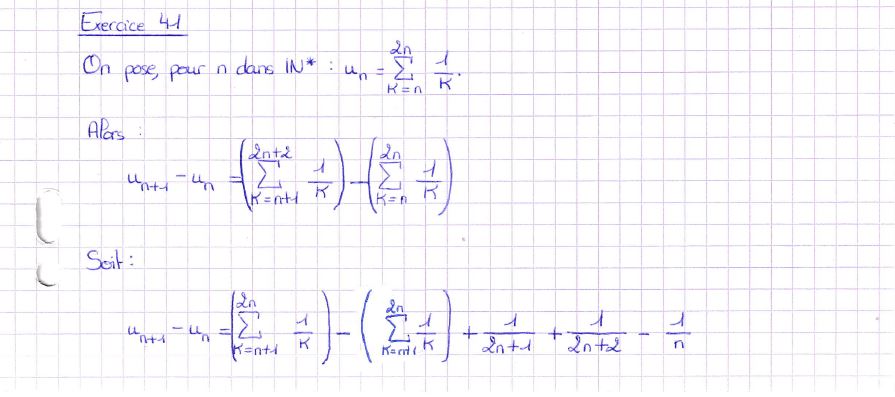 Exercice 41
On pose, pour n dans IN* : uₙ = ∑_{K=n}^{2n} 1/K.
Alors :
uₙ₊₁ − uₙ = (∑_{K=n+1}^{2n+2} 1/K) − (∑_{K=n}^{2n} 1/K)
Soit :
uₙ₊₁ − uₙ = (∑_{K=n+1}^{2n} 1/K) − (∑_{K=n+1}^{2n} 1/K) + 1/(2n+1) + 1/(2n+2) − 1/n